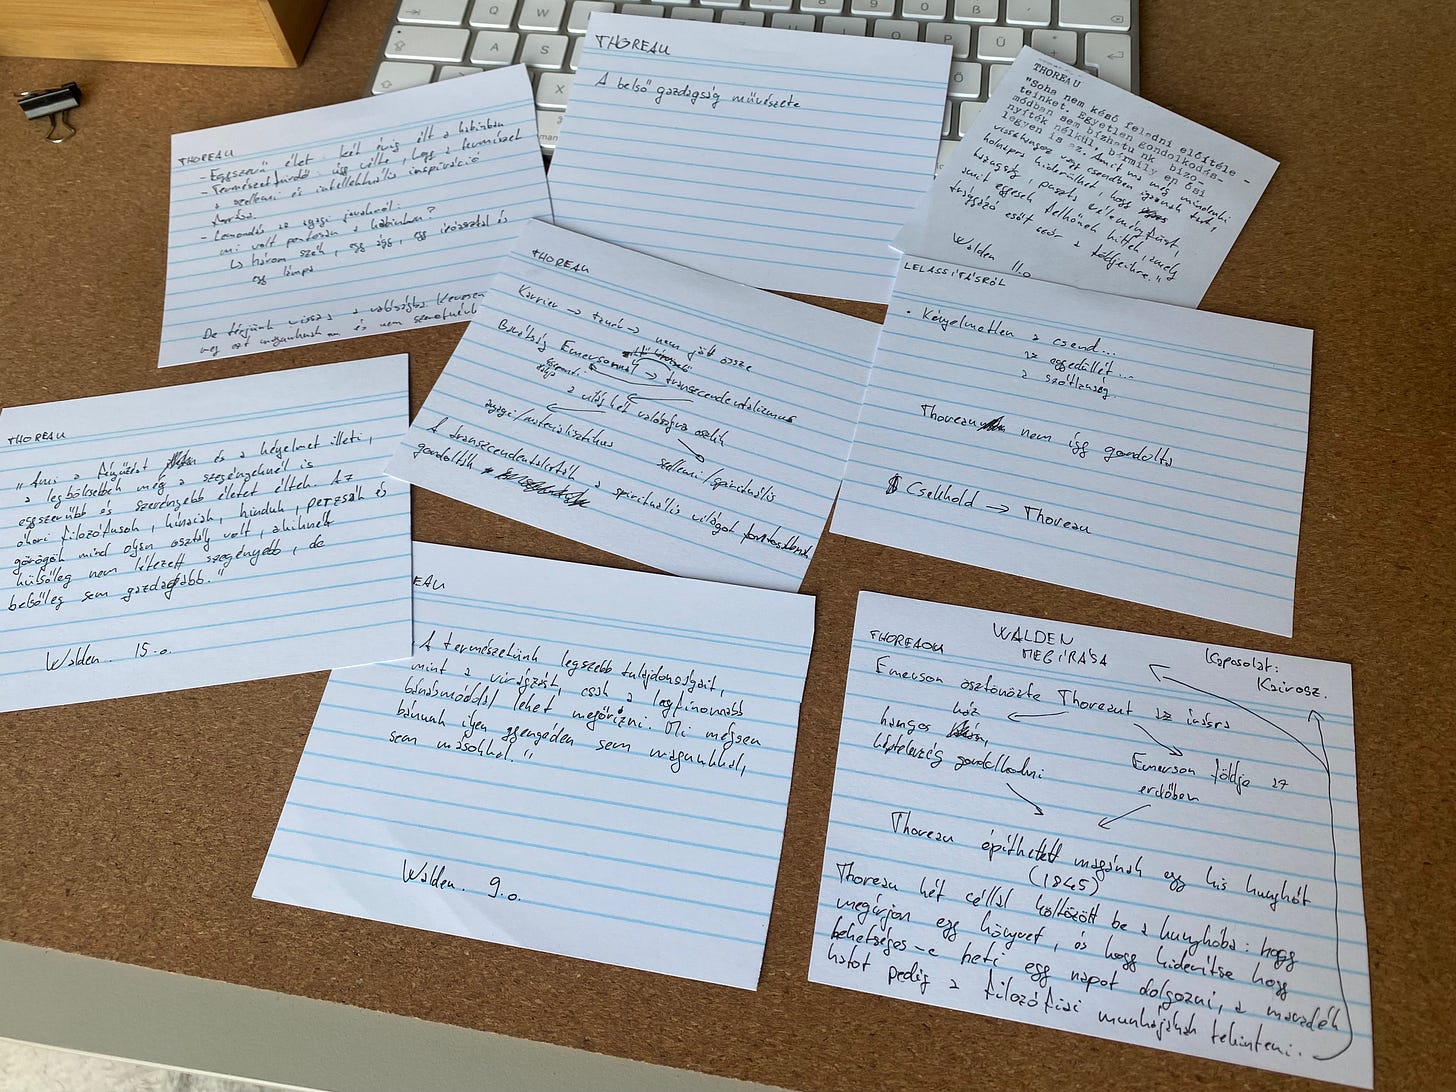 THOREAU
- Egyszerű élet: két évig élt a kabinban
- Természetimádó: úgy vélte, hogy a természet
a szellemi és intellektuális inspiráció
forrása.
- Lemondás az anyagi javakról:
mi volt pontosan a kabinban?
három szék, egy ágy, egy íróasztal és
egy lámpa
De térjünk vissza a valóságba. Keresem
meg ezt magunknak és nem
THOREAU
A belső gazdagság művészete
THOREAU
"Soha nem késő feladni előítéle-
teinket. Egyetlen gondolkodás-
módban sem bízhatunk bizo-
nyíték nélkül, bármily en ősi
legyen is az. Ami ma még mindenki
visszhangoz vagy csendben igaznak tart,
holnapra kiderülhet hogy
hazugság, puszta vélemény füst,
amit egyesek felhőnek hittek, amely
trágyázó esőt szór a földjeikre."
Walden 11.o.
THOREAU
Karrier → tanár →
nem jött össze
Barátság Emerson
→ transcendentalizmus
a világ két valóságra oszlik
anyagi/materialisztikus
szellemi/spirituális
A transcendentalisták a spirituális világot fontosabbnak
gondolták
LELASSÍTÁSRÓL
• Kényelmetlen a csend...
az egyedüllét...
a szótlanság.
Thoreau nem így gondolta
Csekhold → Thoreau
THOREAU
"Ami a fényűzést és a kényelmet illeti,
a legbölcsebbek még a szegényeknél is
egyszerűbb és szerényebb életet éltek. Az
ókori filozófusok, kínaiak, hinduk, perzsák és
görögök mind olyan osztály volt, akiknek
külsőleg nem létezett szegényebb, de
belsőleg sem gazdagabb."
Walden. 15.o.
EAU
A természetünk legszebb tulajdonságait,
mint a virágzást, csak a legfinomabb
bánásmóddal lehet megőrizni. Mi mégsem
bánunk ilyen gyengéden sem magunkkal,
sem másokkal."
Walden. 9.o.
THOREAOU
WALDEN
MEGÍRÁSA
Kapcsolat:
Kairosz.
Emerson ösztönözte Thoreaut az írásra
hangos ház
képtelenség gondolkodni
Emerson földje az
erdőben
Thoreau építhetett magának egy kis kunyhót
(1845)
Thoreau két céllal költözött be a kunyhóba: hogy
megírjon egy könyvet, és hogy kiderítse hogy
lehetséges-e heti egy napot dolgozni, a maradék
hatot pedig a filozófiai munkájának tekinteni.